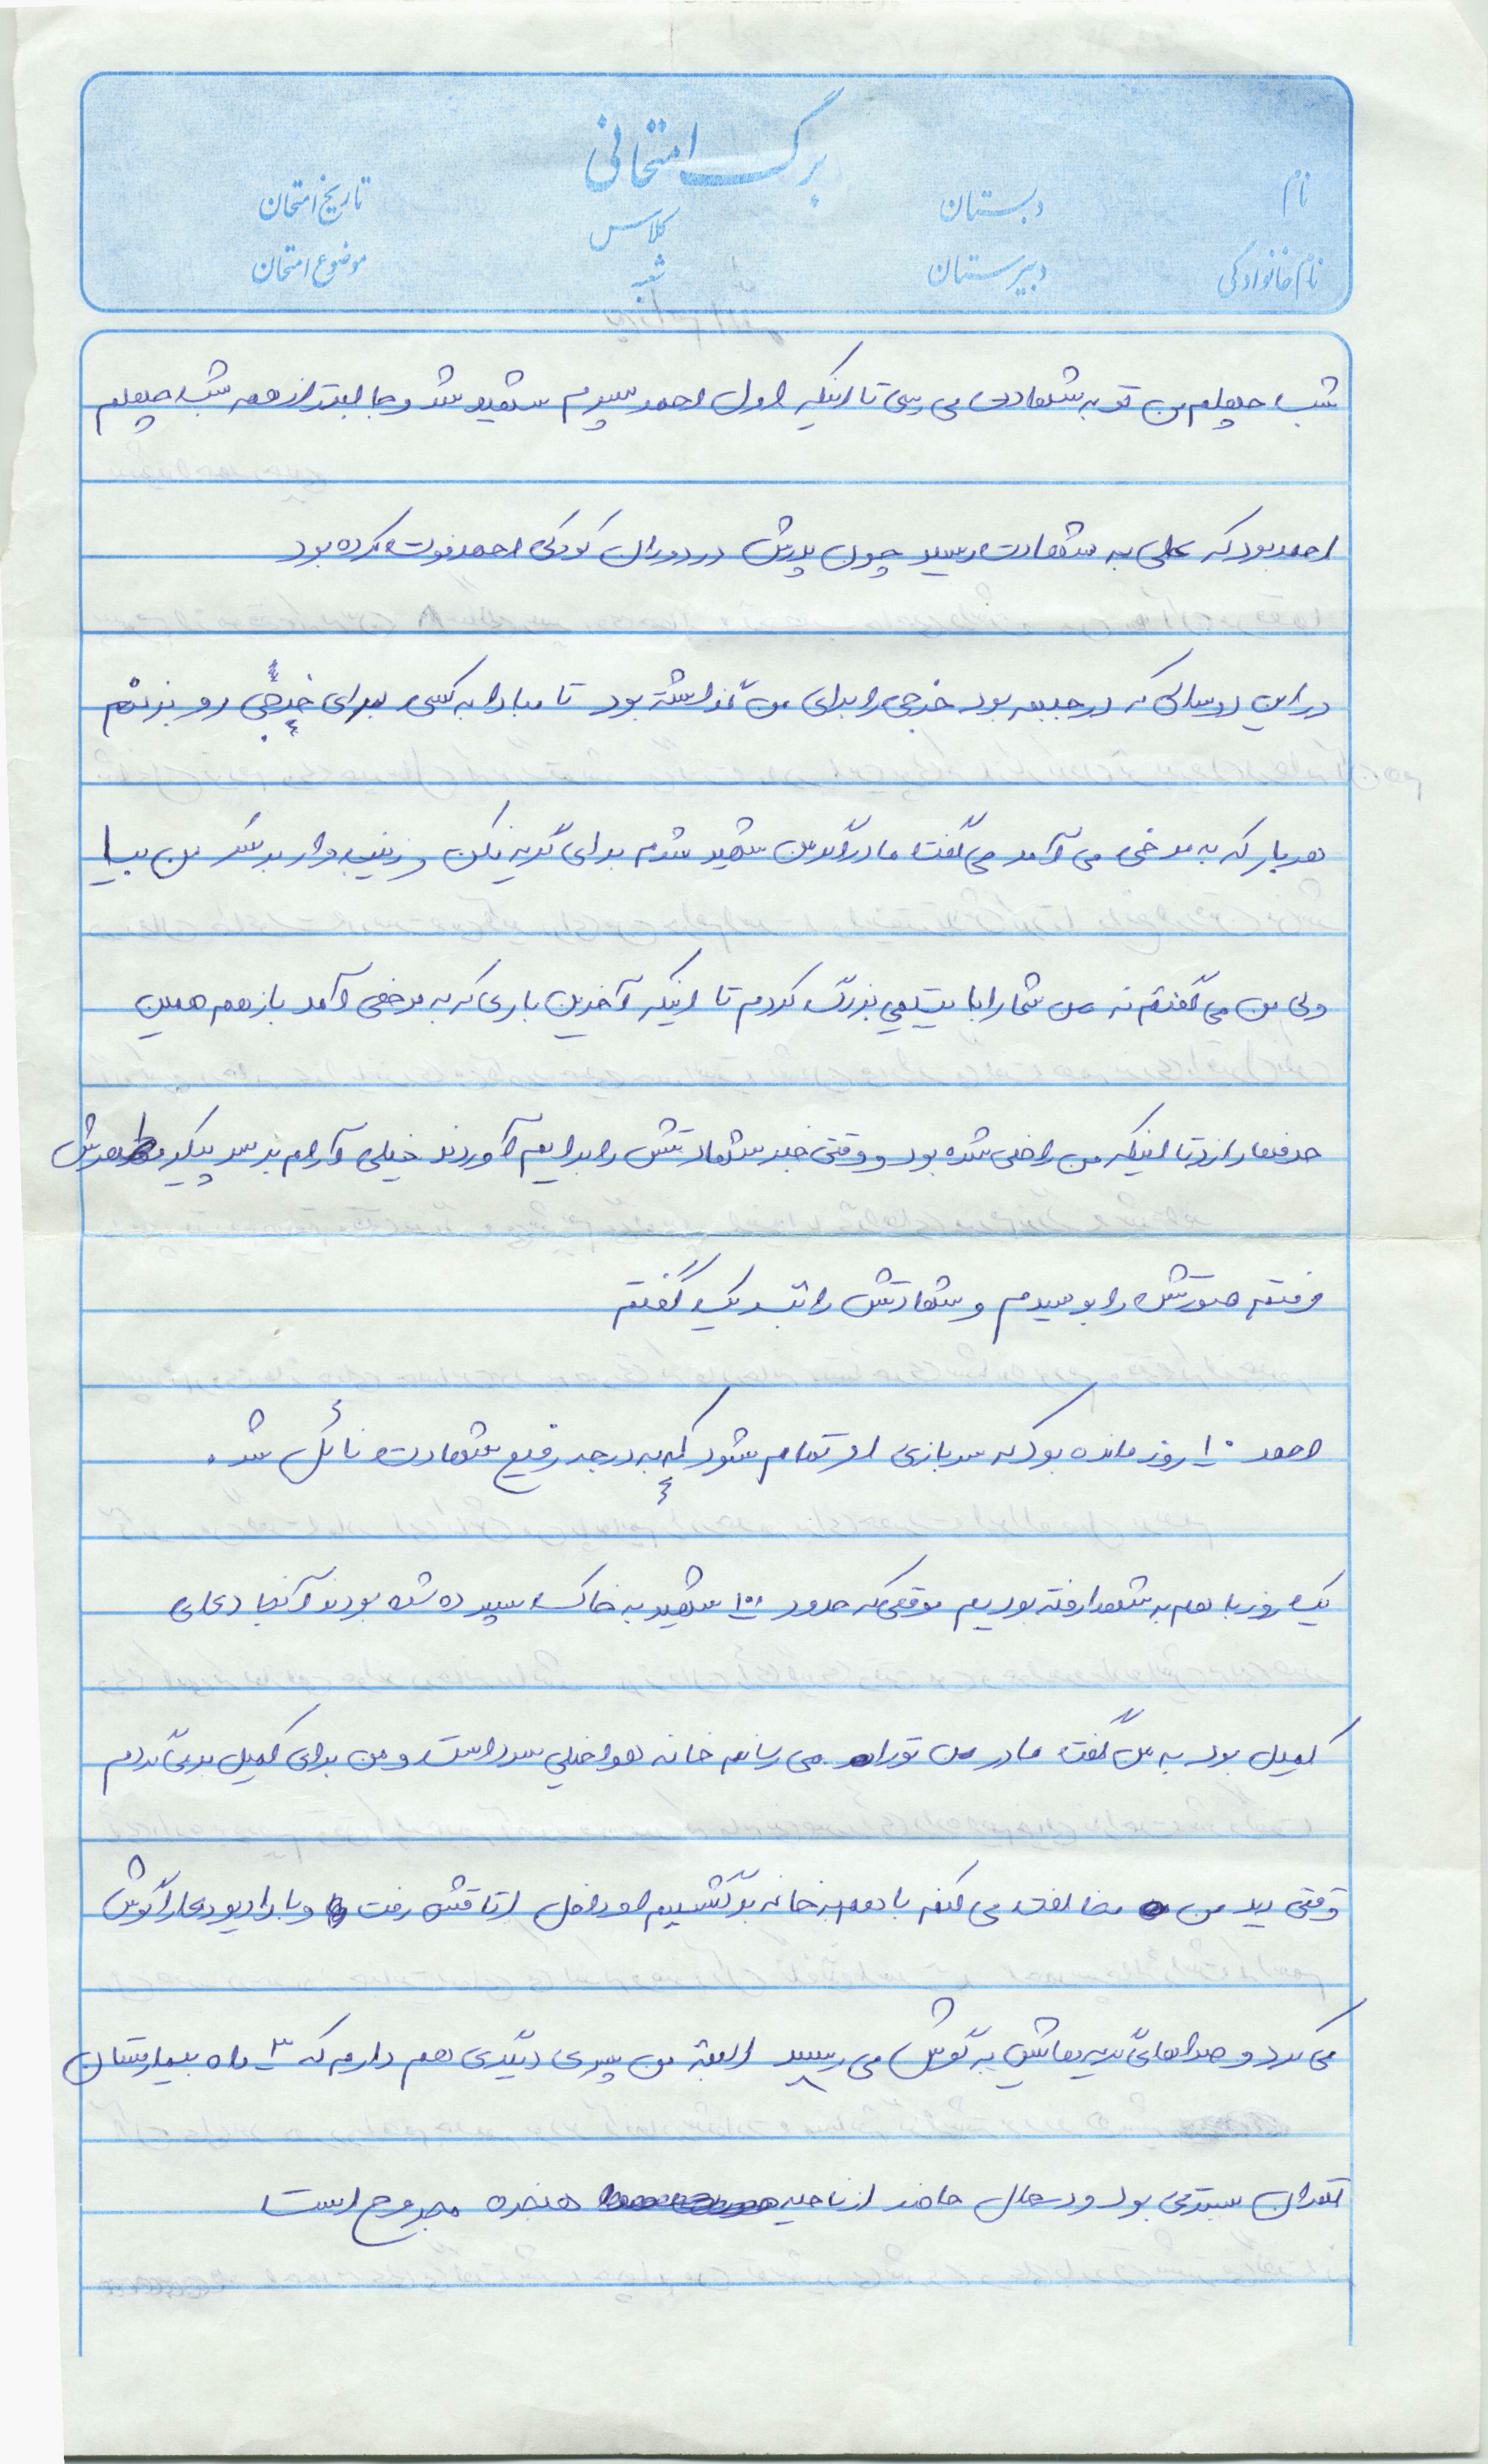 برگ امتحانی
نام
دبستان
کلاس
تاریخ امتحان
نام خانوادگی
دبیرستان
شعبه
موضوع امتحان
شب چهلم من تو به شهادت می رسی تا اینکه اول احمد پسرم شهید شد و جالبتر از همه شب چهلم
احمد بود که علی به شهادت رسید چون پدرش در دوران کودکی احمد فوت کرده بود
در این دو سالی که در جبهه بود خرجی را برای من گذاشته بود تا مبادا به کسی برای خرجی رو بزنم
هر بار که به مرخصی می آمد می گفت مادر اگر من شهید شدم برای گریه نکن و زینب وار بر سر من بیا
ولی من می گفتم نه من شما را با یتیمی بزرگ کردم تا اینکه آخرین باری که به مرخصی آمد باز هم همین
حرفها را زد تا اینکه من راضی شده بود و وقتی خبر شهادتش را برایم آوردند خیلی آرام بر سر پیکر مطهرش
رفتم صورتش را بوسیدم و شهادتش را تبریک گفتم
احمد ۱۰ روز مانده بود که سربازی او تمام شود که به درجه رفیع شهادت نائل شد.
یک روز با هم به شهدا رفته بودیم موقعی که حدود ۱۰۰ شهید به خاک سپرده شده بودند آنجا دعای
کمیل بود به من گفت مادر من تو را می رسانم خانه هوا خیلی سرد است و من برای کمیل برمی گردم
وقتی دید من مخالفت می کنم با هم به خانه برگشتیم او داخل اتاقش رفت و با رادیو دعا را گوش
می کرد و صداهای گریه هایش به گوش می رسید البته من پسری دیگری هم دارم که ۳ ماه بیمارستان
تهران بستری بود و در حال حاضر از ناحیه حنجره مجروح است